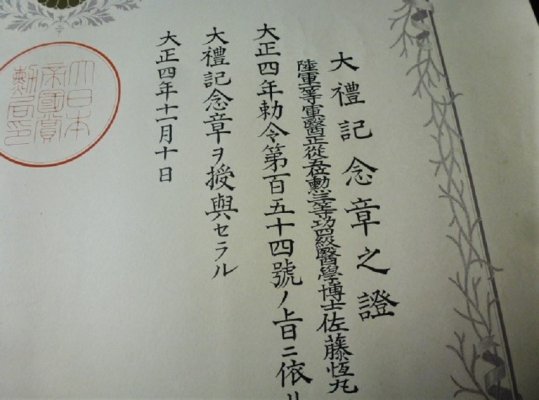 大禮記念章之證
陸軍一等軍醫正從五位勲三等功四級醫學博士佐藤恒丸
大正四年勅令第百五十四號ノ旨ニ依リ
大禮記念章ヲ授與セラル
大正四年十一月十日
大日本
帝國賞
勲局印